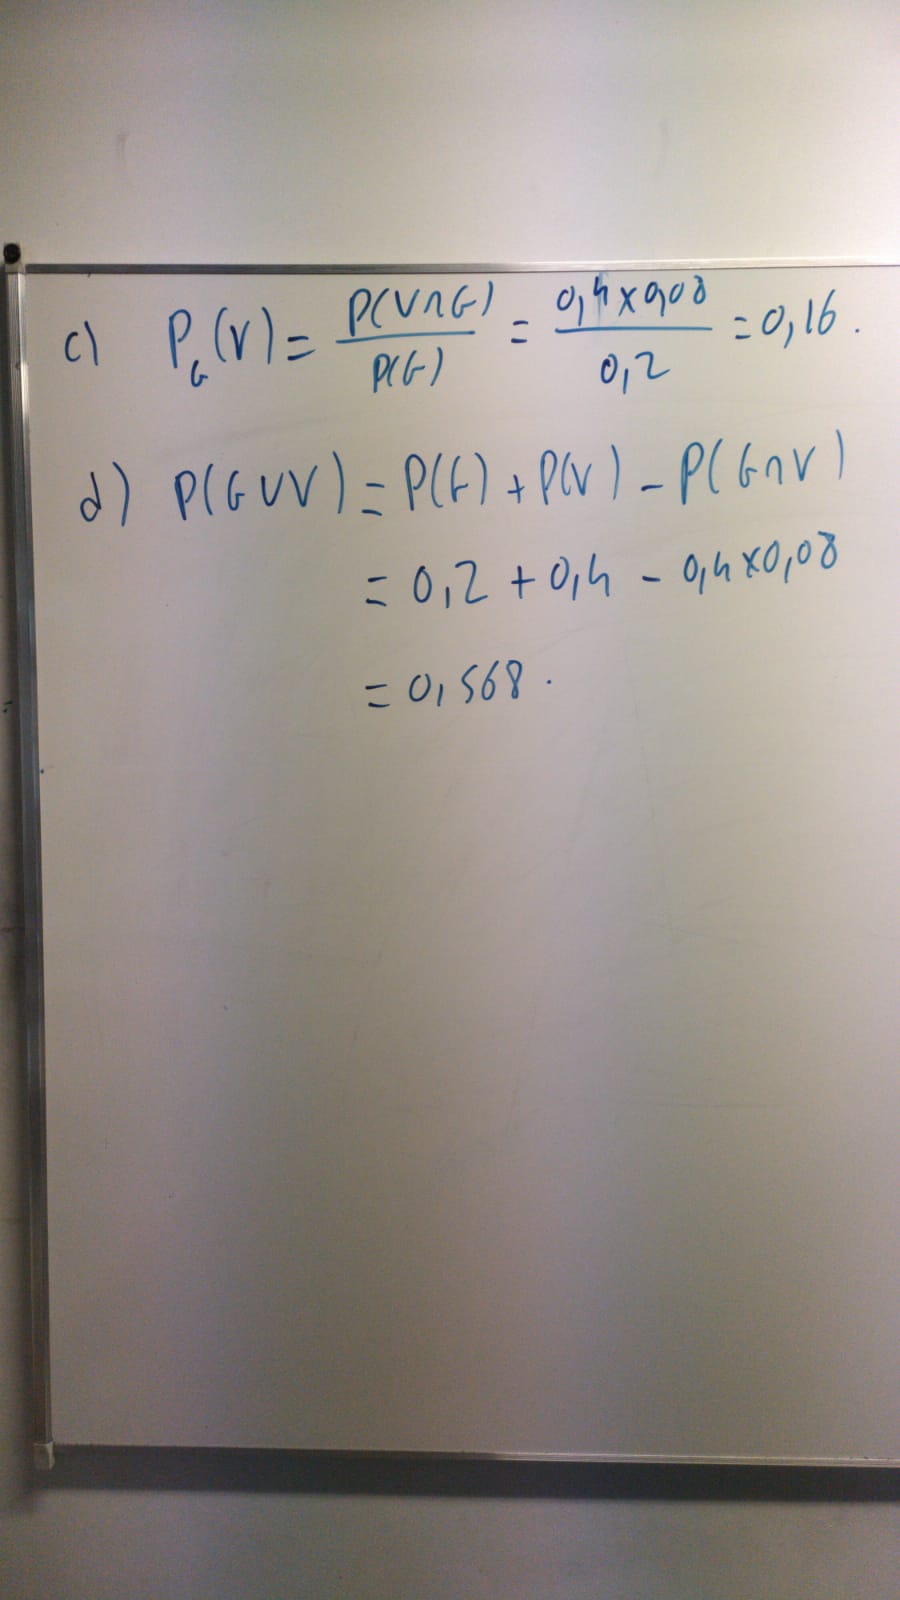 c) P_G(V) = P(V∩G) / P(G) = 0,4 x 0,08 / 0,2 = 0,16.
d) P(G∪V) = P(G) + P(V) - P(G∩V)
= 0,2 + 0,4 - 0,4 x 0,08
= 0,568.